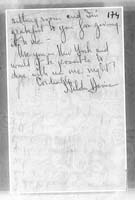 sitting room and I'm 174
grateful to you for giving
it to me –
Are you in New York and
would it be possible to
dine with me one night?
Cordially